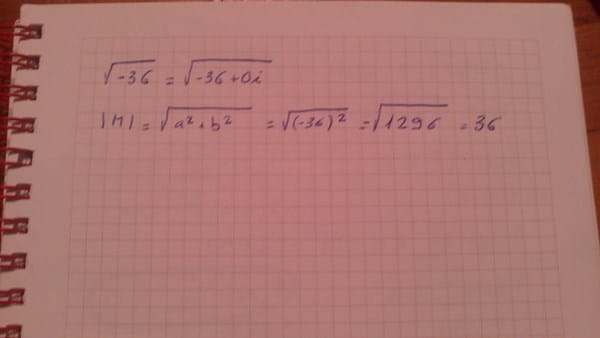 √-36 = √-36+0i
|M| = √a²+b² = √(-36)² = √1296 = 36